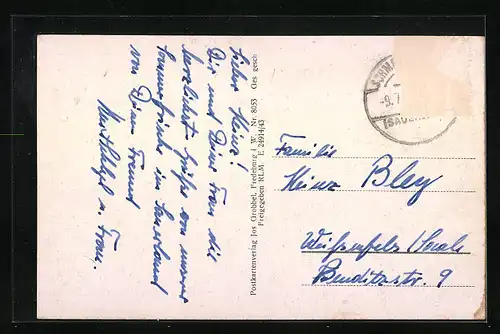 Lieber Heinz!
Dir und Deiner Frau die
herzlichsten Grüße von unserer
Sommerfrische im Sauerland
von Deinem Freund
u. Frau.
Postkartenverlag Jos Grobbel, Fredeburg i. W. Nr. 8053 Ges gesch
Freigegeben RLM. E 24914/43
-9.7
(SAUERL
Familie
Heinz Bley
Weißenfels/Saale
Benditzstr. 9